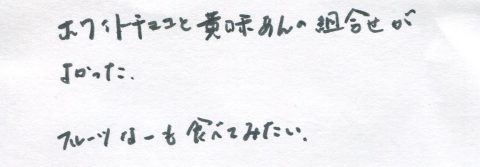 ホワイトチョコと黄味あんの組合せが
よかった.
フルーツはーも食べてみたい.